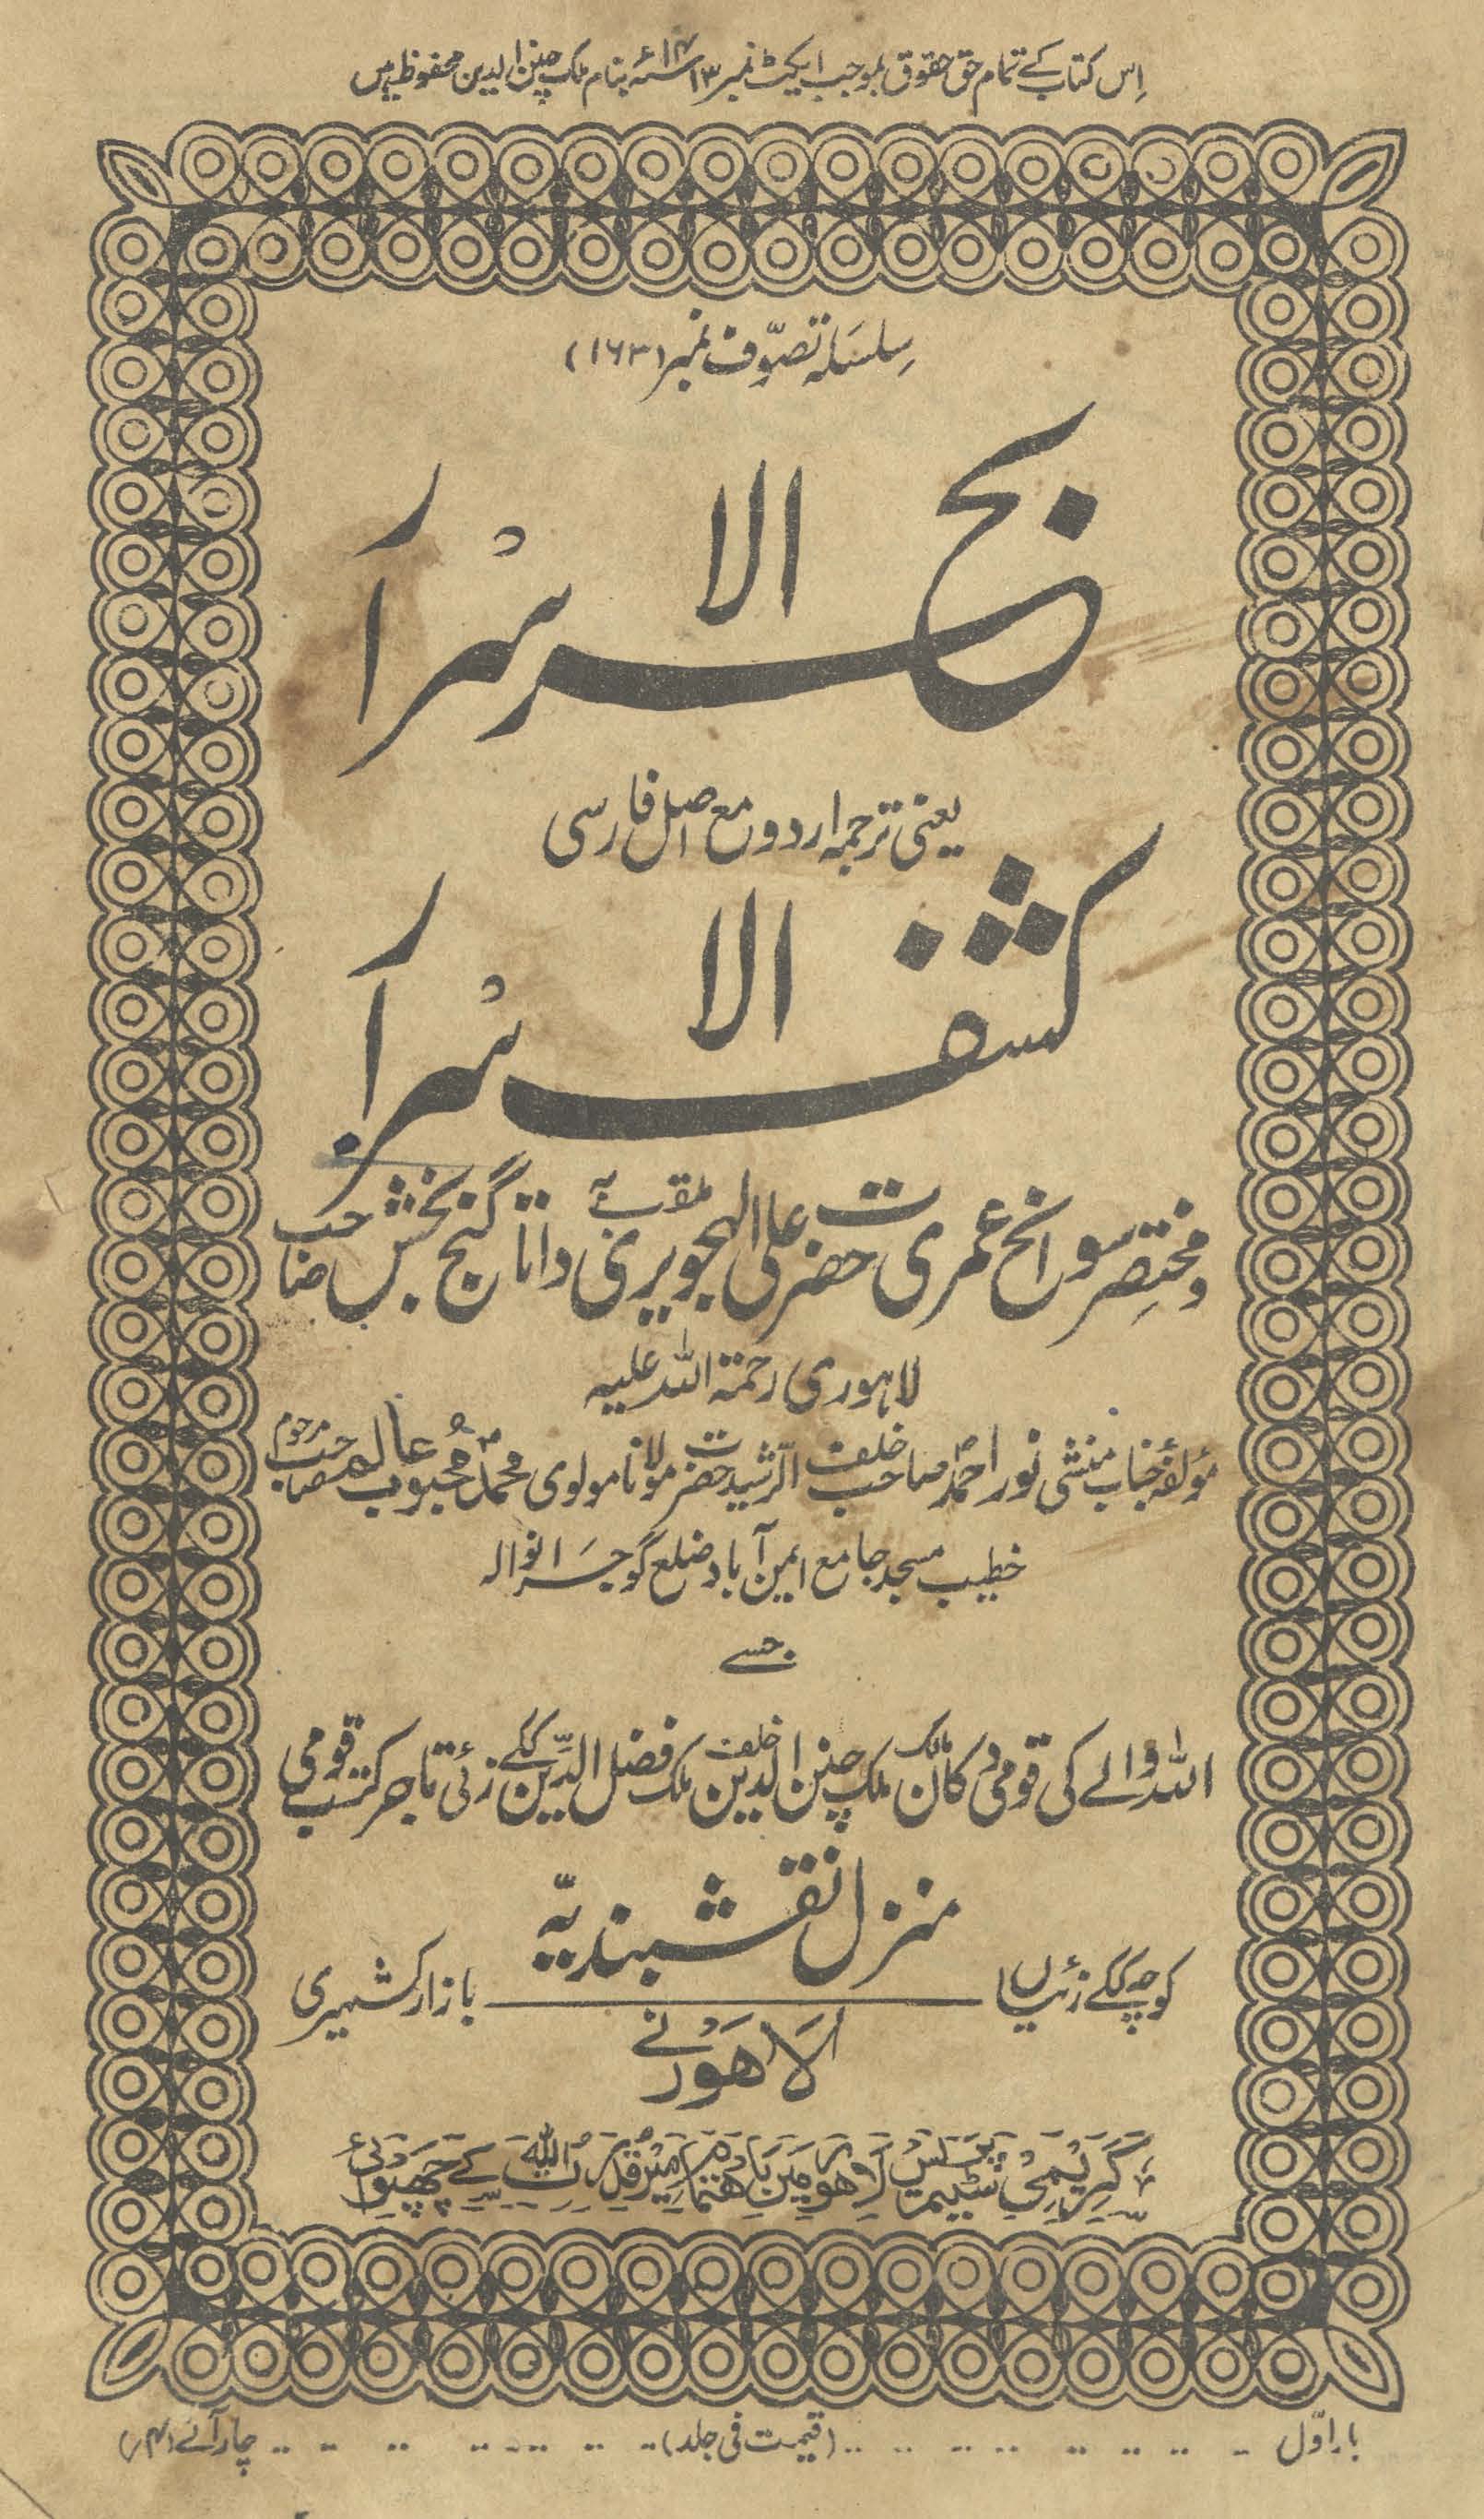 اِس کتاب کے تمام حق حقوق بموجب ایکٹ نمبر ۳ ۱۹۱۴ء بنام ملک چنن الدین محفوظ ہیں
سِلسَلہ تصوّف نمبر (۱۶۳)
بحر الاسرار
یعنی ترجمہ اردو مع اصل فارسی
کشف الاسرار
و مختصر سوانح عمری حضرت علی الہجویری ملقب بہ داتا گنج بخش صاحب
لاہوری رحمۃ اللہ علیہ
مؤلفۂ جناب منشی نور احمد صاحب خلف الرّشید حضرت مولانا مولوی محمد محبوب عالم صاحب مرحوم
خطیب مسجد جامع ایمن آباد ضلع گوجرانوالہ
جسے
اللہ والے کی قومی دکان کے مالک ملک چنن الدین خلف ملک فضل الدّین ککے زئی تاجر کتب قومی
منزل نقشبندیّہ
کوچہ ککے زئیاں بازار کشمیری
لاہور نے
کریمی سٹیم پریس لاہور میں باہتمام میر قدرت اللہ کے چھپوائی
بار اوّل (قیمت فی جلد) چار آنے (۴ر)